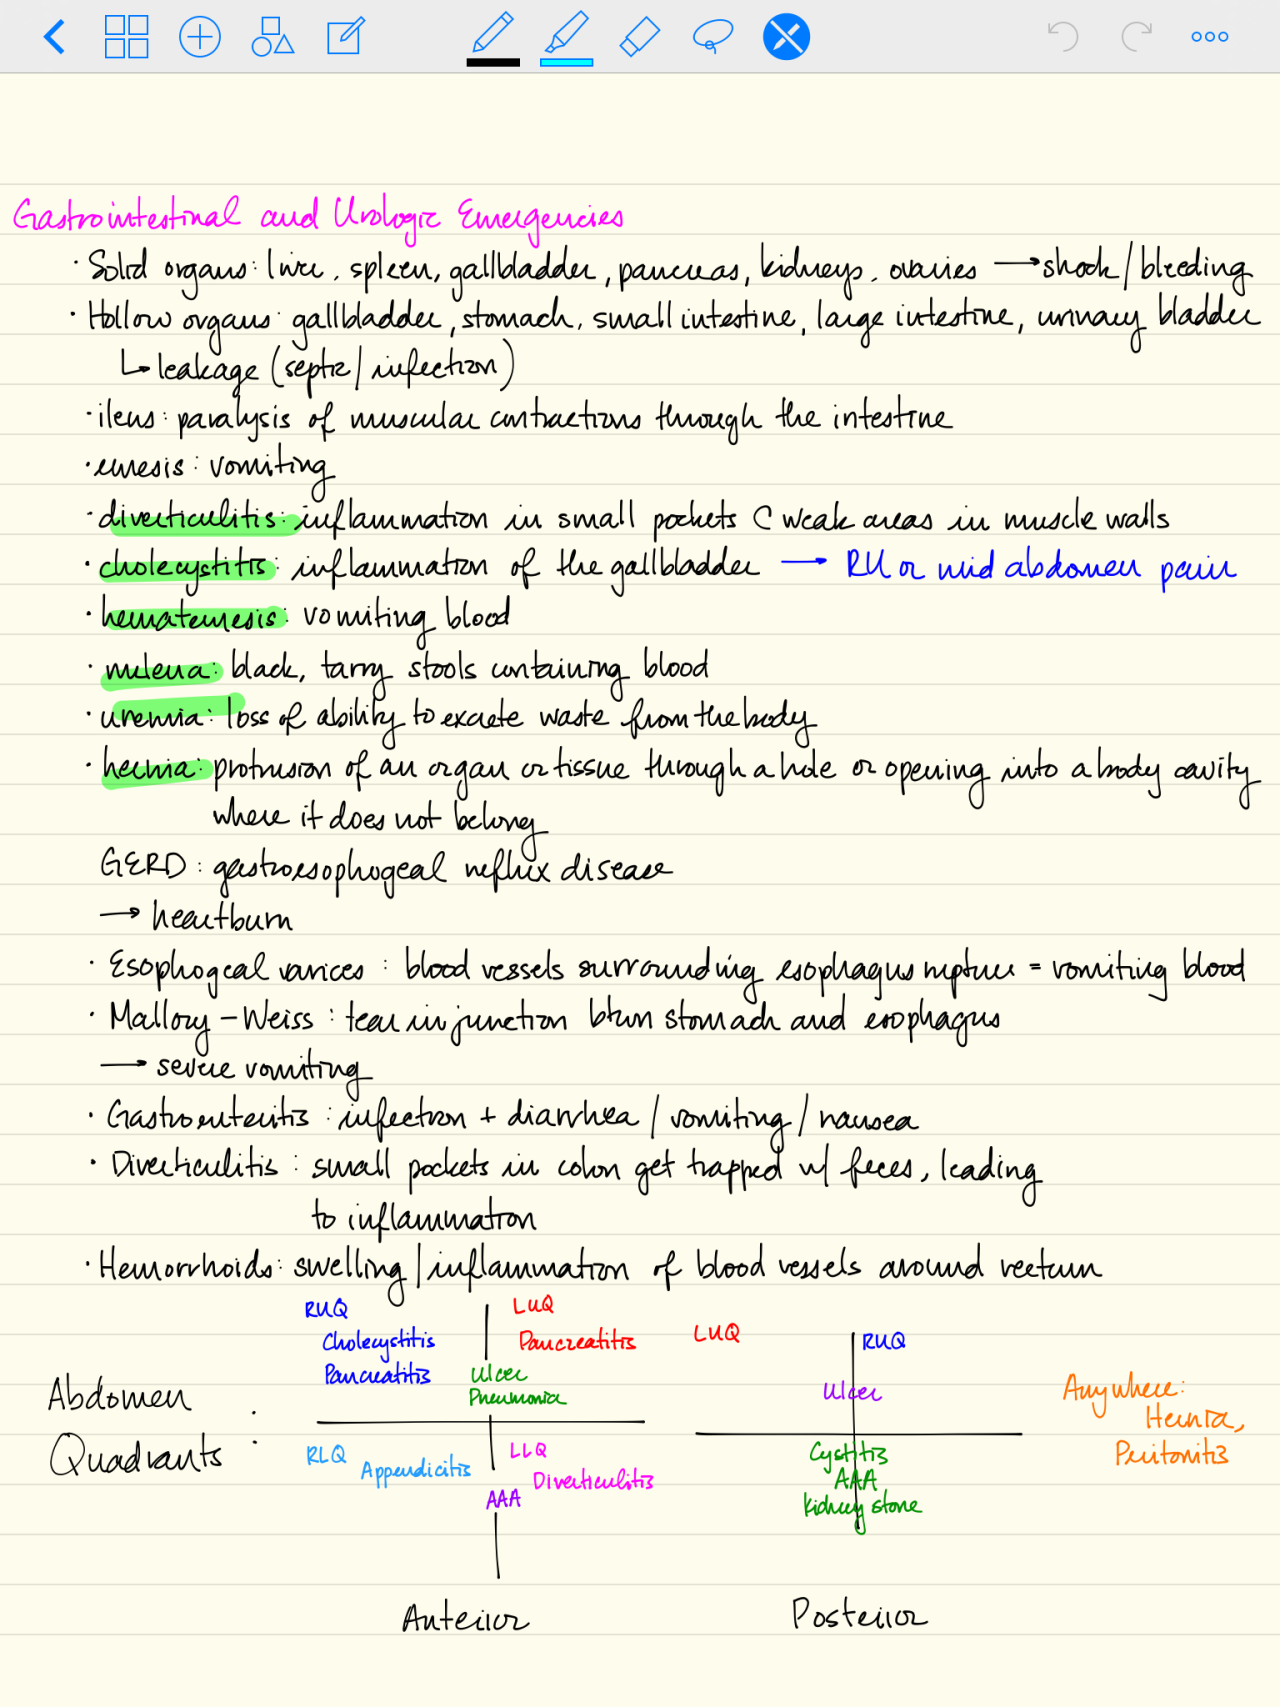 Gastrointestinal and Urologic Emergencies
· Solid organs: liver, spleen, gallbladder, pancreas, kidneys, ovaries → shock/bleeding
· Hollow organs: gallbladder, stomach, small intestine, large intestine, urinary bladder
↳ leakage (septic/infection)
· ileus: paralysis of muscular contractions through the intestine
· emesis: vomiting
· diverticulitis: inflammation in small pockets c weak areas in muscle walls
· cholecystitis: inflammation of the gallbladder → RU or mid abdomen pain
· hematemesis: vomiting blood
· melena: black, tarry stools containing blood
· uremia: loss of ability to excrete waste from the body
· hernia: protrusion of an organ or tissue through a hole or opening into a body cavity
where it does not belong
GERD: gastroesophogeal reflux disease
→ heartburn
· Esophogeal varices: blood vessels surrounding esophagus rupture = vomiting blood
· Mallory-Weiss: tear in junction btwn stomach and esophagus
→ severe vomiting
· Gastroenteritis: infection + diarrhea/vomiting/nausea
· Diverticulitis: small pockets in colon get trapped w/ feces, leading
to inflammation
· Hemorrhoids: swelling/inflammation of blood vessels around rectum
Abdomen
Quadrants:
RUQ
Cholecystitis
Pancreatitis
LUQ
Pancreatitis
Ulcer
Pneumonia
RLQ
Appendicitis
LLQ
Diverticulitis
AAA
Anterior
LUQ
RUQ
Ulcer
Cystitis
AAA
Kidney stone
Posterior
Anywhere:
Hernia,
Peritonitis